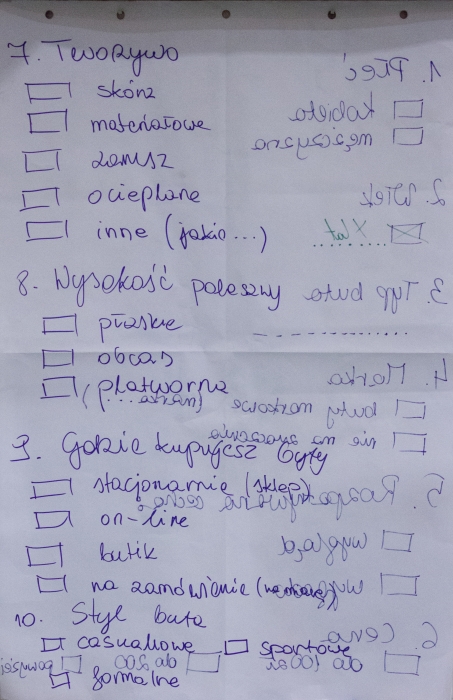 7. Tworzywo
skóra
materiałowe
zamsz
ocieplane
inne (jakie...)
8. Wysokość podeszwy
płaskie
obcas
platforma
9. Gdzie kupujesz buty
stacjonarnie (sklep)
on-line
butik
na zamówienie (na miarę)
10. Styl buta
casualowe sportowe
formalne
1. Płeć
kobieta
mężczyzna
2. Wiek
X lat
3. Typ buta
4. Marka
buty markowe
nie ma znaczenia
5. Rozpoznawalna cecha
wygląd
6. Cena
do 100 zł
do 200
powyżej